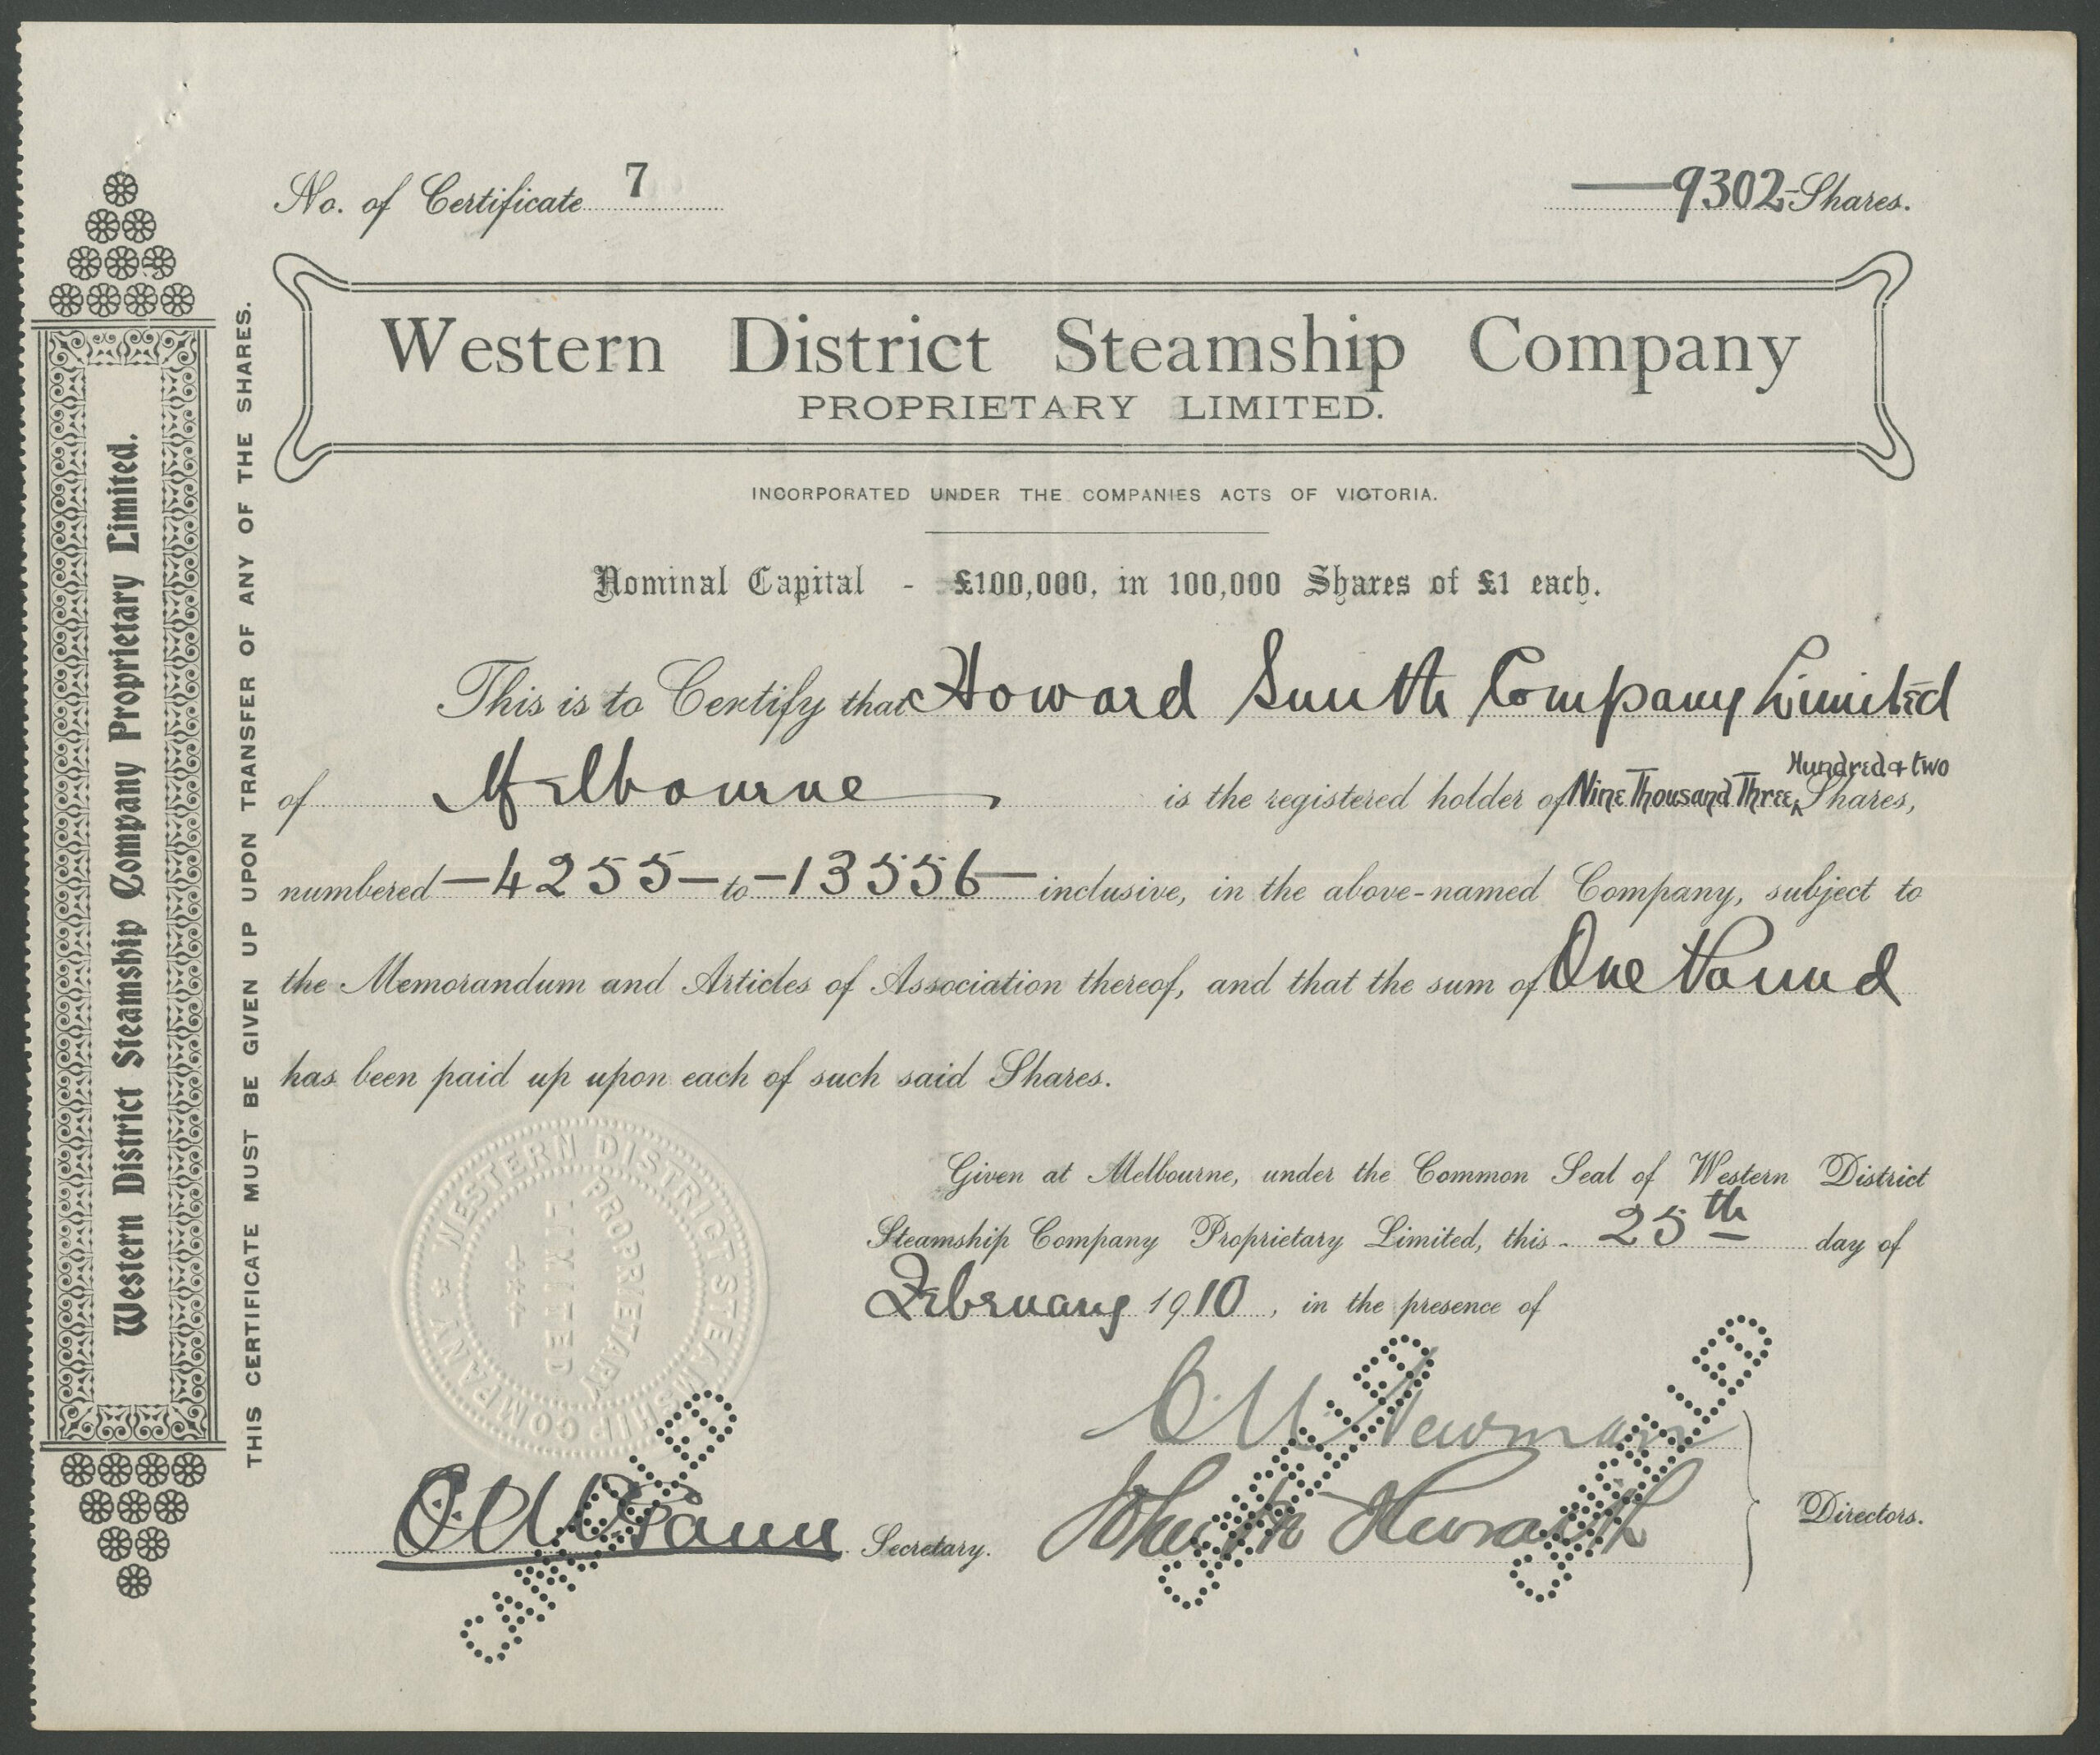 No. of Certificate 7
—9302- Shares.
Western District Steamship Company
PROPRIETARY LIMITED.
INCORPORATED UNDER THE COMPANIES ACTS OF VICTORIA.
Nominal Capital - £100,000, in 100,000 Shares of £1 each.
This is to Certify that Howard Smith Company Limited
Hundred & two
of Melbourne is the registered holder of Nine Thousand Three Shares,
numbered —4255— to —13556— inclusive, in the above-named Company, subject to
the Memorandum and Articles of Association thereof, and that the sum of One Pound
has been paid up upon each of such said Shares.
Given at Melbourne, under the Common Seal of Western District
Steamship Company Proprietary Limited, this 25th day of
February 1910, in the presence of
Newman
Secretary.
Directors.
CANCELLED
CANCELLED
CANCELLED
WESTERN DISTRICT STEAMSHIP COMPANY
PROPRIETARY
LIMITED
Western District Steamship Company Proprietary Limited.
THIS CERTIFICATE MUST BE GIVEN UP UPON TRANSFER OF ANY OF THE SHARES.